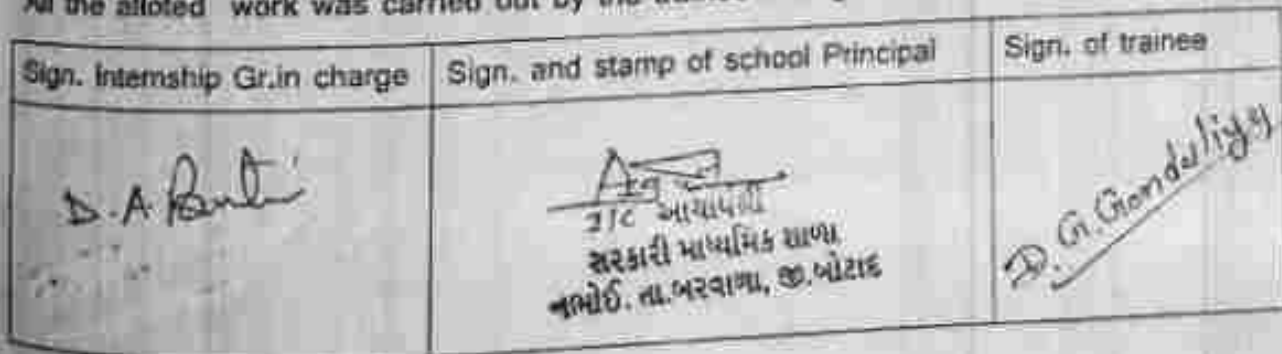 All the alloted work was carried out by the trainee
Sign. Internship Gr.in charge
Sign. and stamp of school Principal
Sign. of trainee
D.A.
I/C આચાર્યશ્રી
સરકારી માધ્યમિક શાળા
નભોઈ. તા.બરવાળા, જી.બોટાદ
D. G. Gondaliya